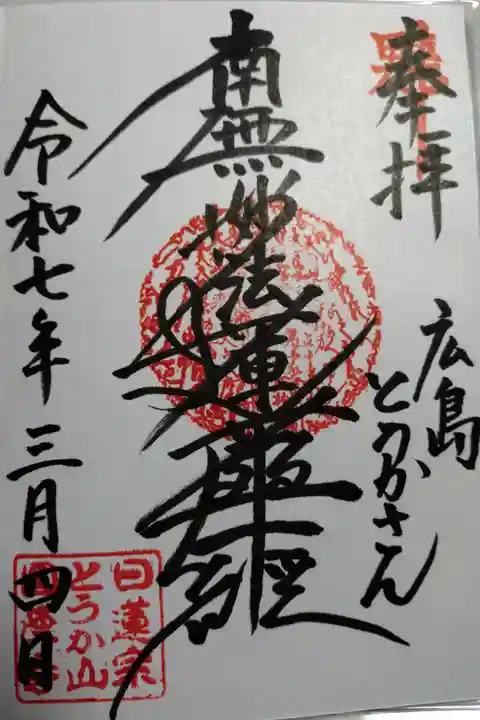 奉拝
広島
とうかさん
南無妙法蓮華経
令和七年三月四日
日蓮宗
とうか山